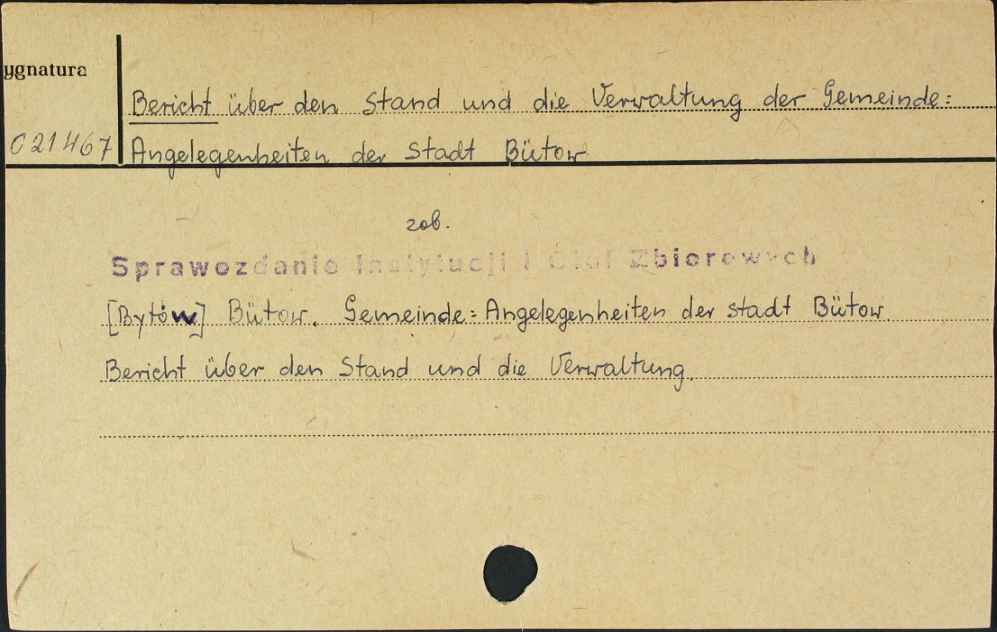 ygnatura
Bericht über den Stand und die Verwaltung der Gemeinde=
C21467 Angelegenheiten der Stadt Bütow
zob.
Sprawozdanie Instytucji i Ciał Zbiorowych
[Bytów] Bütow. Gemeinde=Angelegenheiten der Stadt Bütow.
Bericht über den Stand und die Verwaltung.